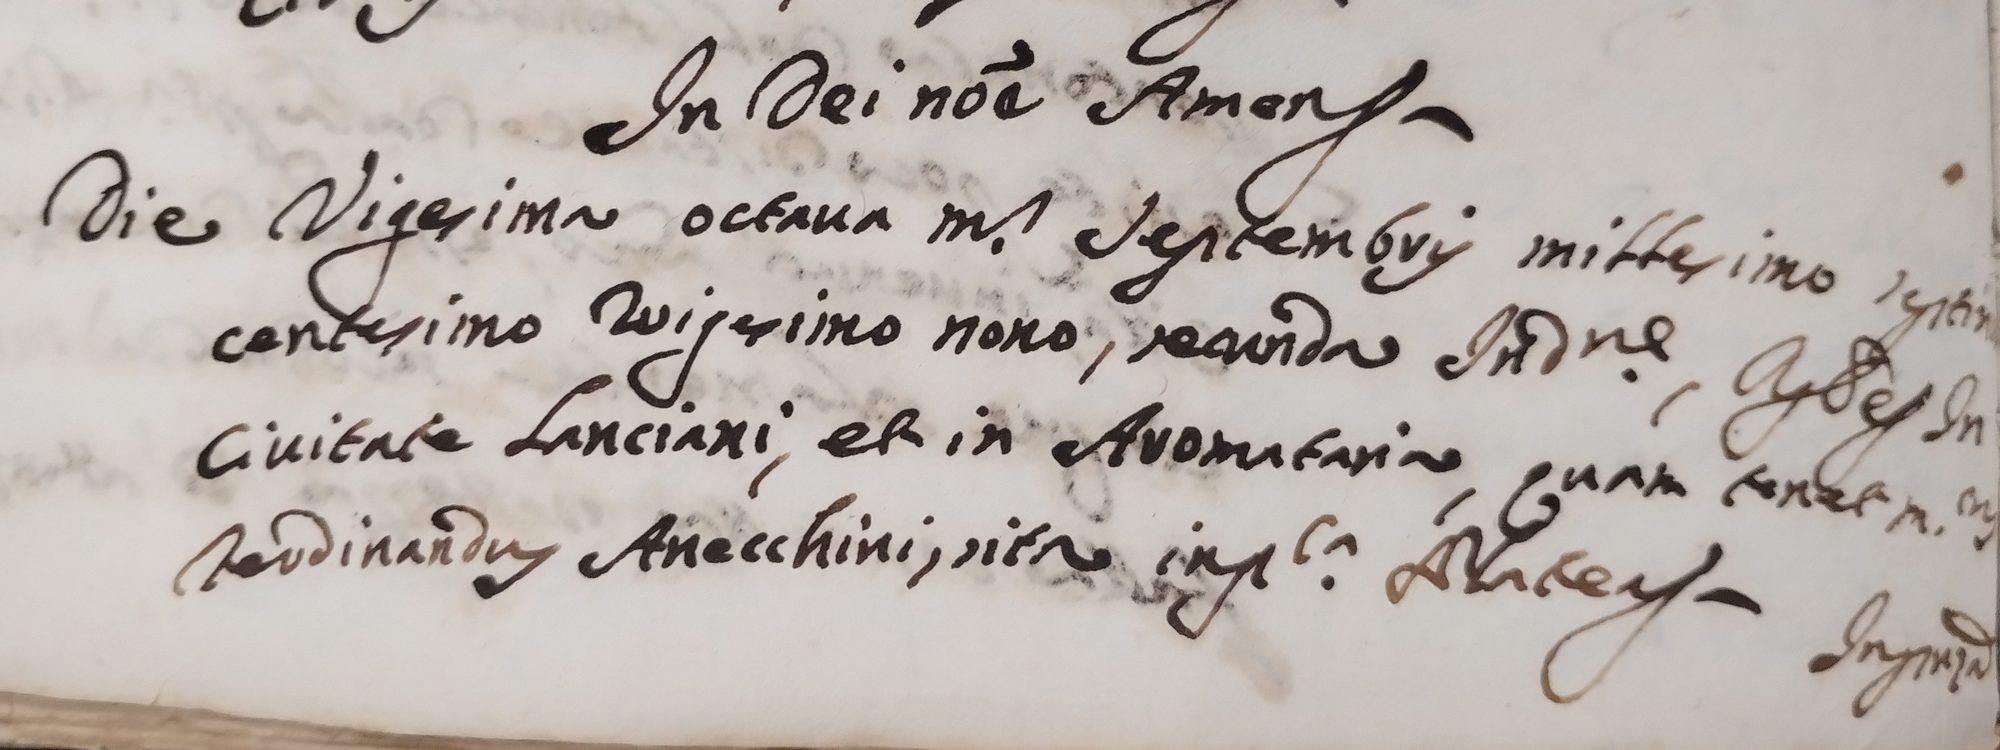 In Dei nõe Amen
Die Vigesima octaua m.s Septembris millesimo septin
centesimo Vigesimo nono, secunda Ind.ne, In
Ciuitate Lanciani, et in Aromataria, quam tenet m.
Ferdinandus Anecchini, sita in pl.a